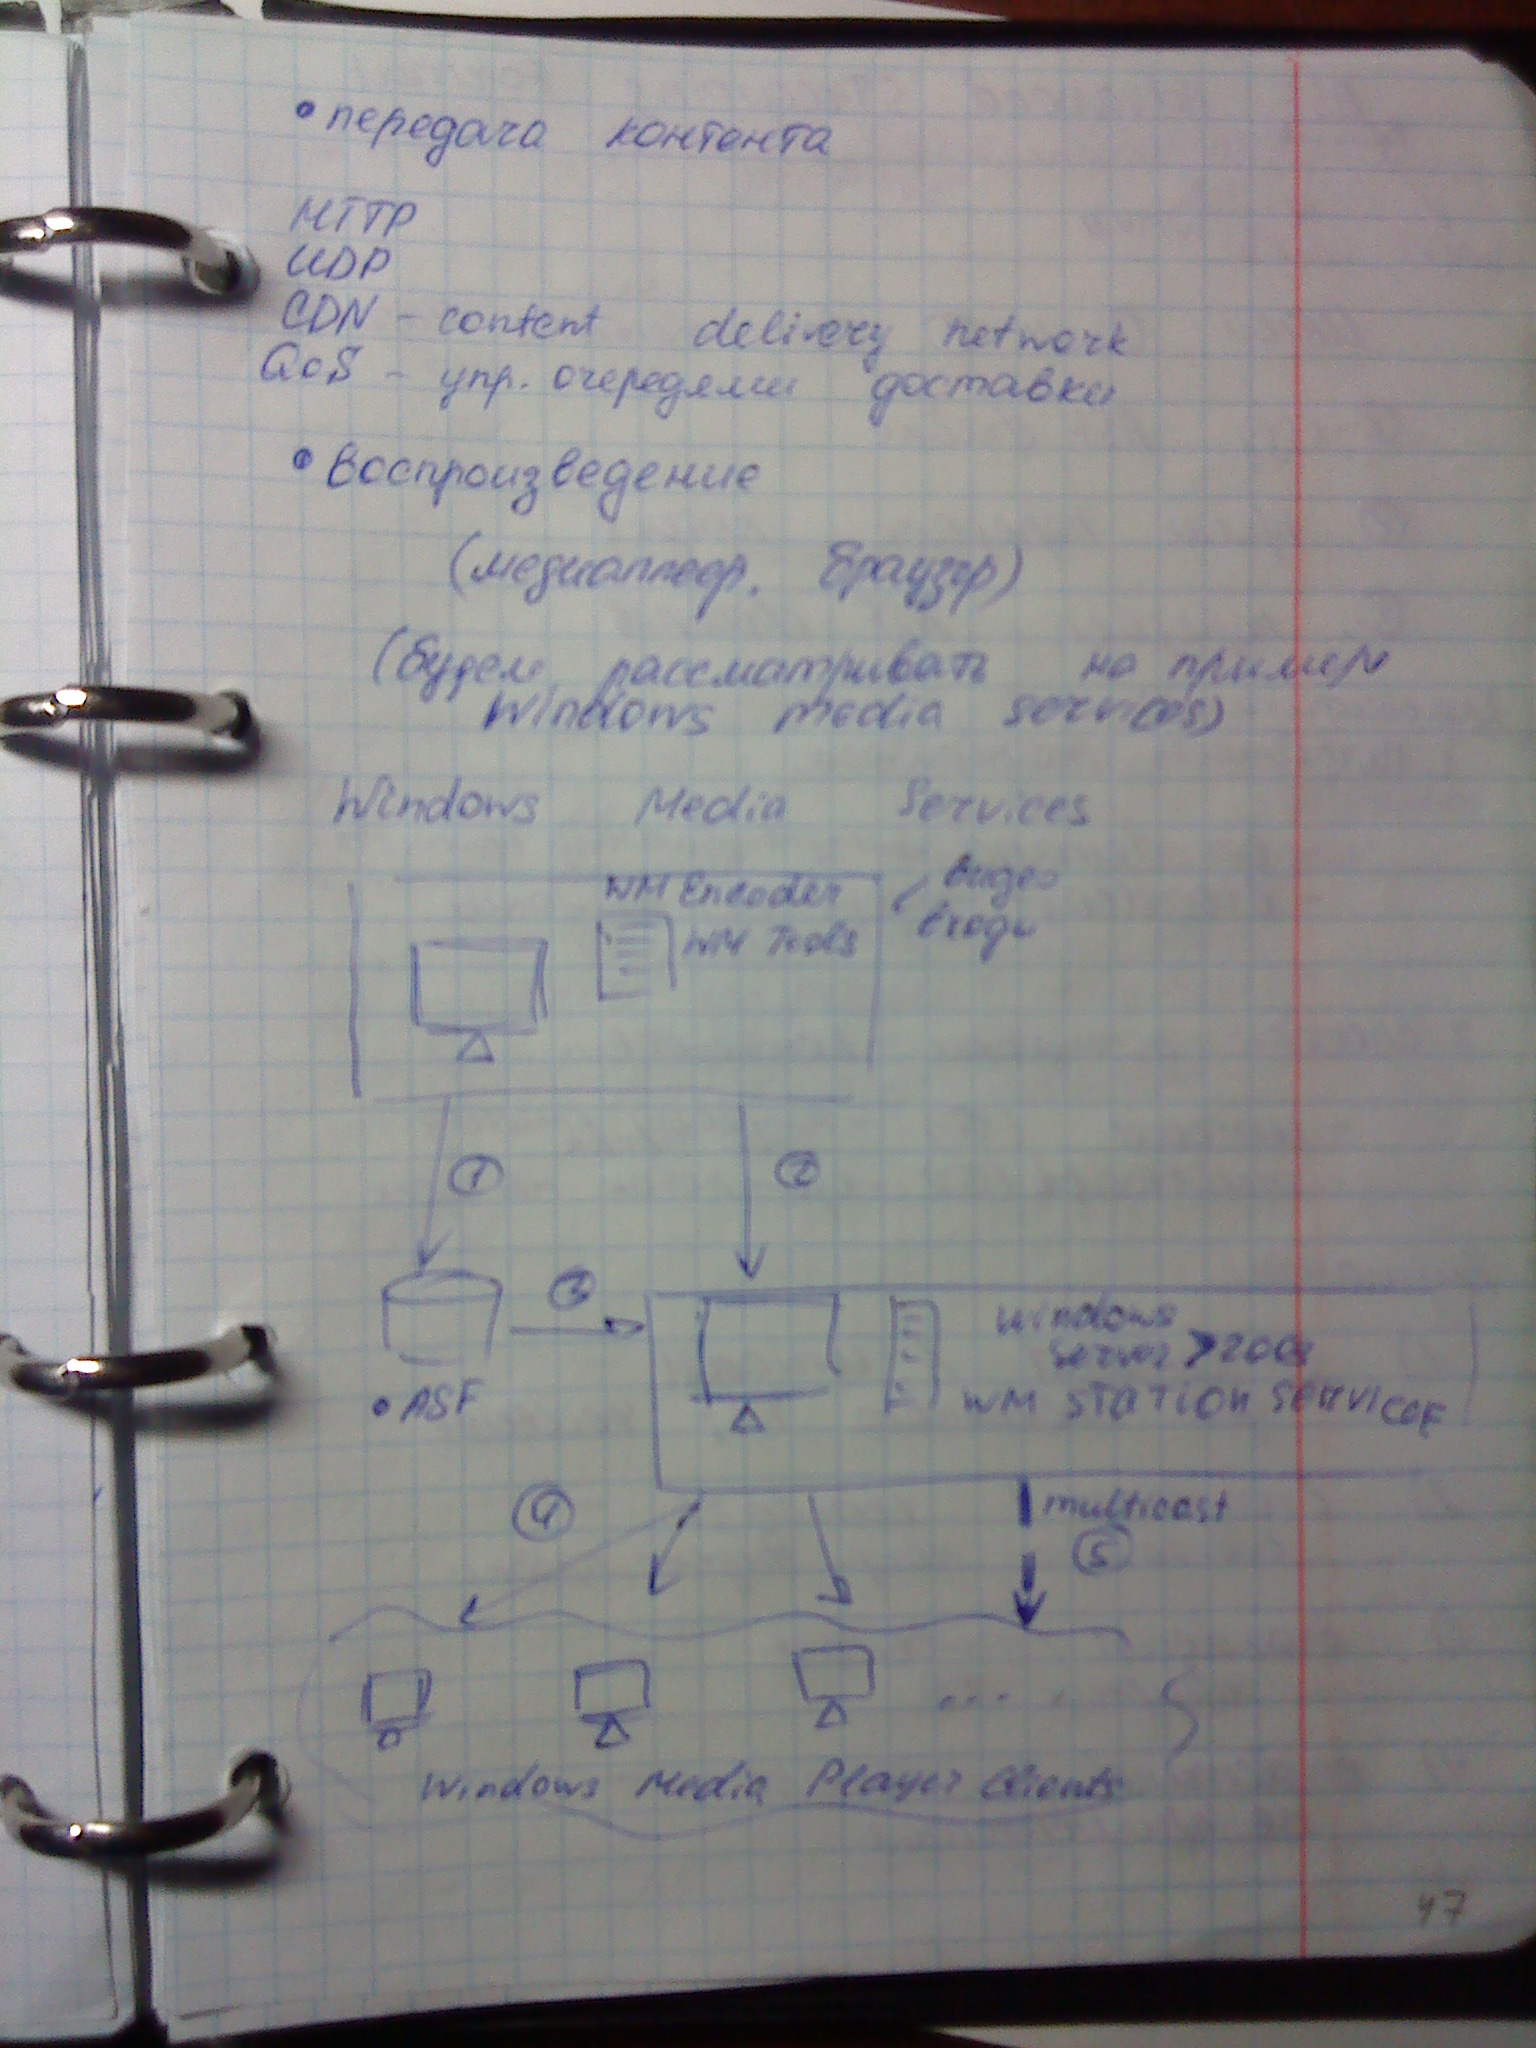 • передача контента
HTTP
UDP
CDN - content delivery network
QoS - упр. очередями доставки
• Воспроизведение
(медиаплеер, браузер)
(будем рассматривать на примере
Windows media services)
Windows Media Services
WM Encoder
WM Tools
видео
входи
1
2
3
• ASF
Windows
Server > 2003
WM STATION SERVICES
4
multicast
5
...
Windows Media Player Clients
47